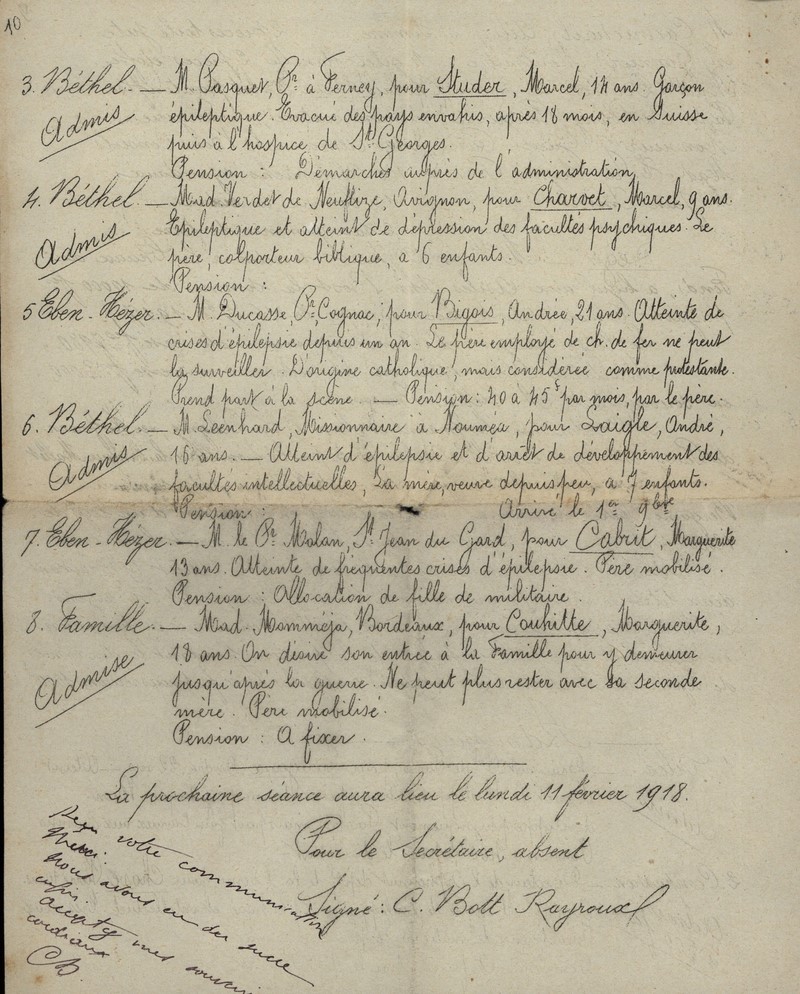 10
3. Béthel. — M. Pasquet, Pr à Ferney, pour Studer, Marcel, 14 ans. Garçon
Admis
épileptique. Evacué des pays envahis, après 18 mois, en Suisse
puis à l'hospice de St Georges.
Pension : Démarches auprès de l'administration
4. Béthel. — Mad. Verdet de Neuflize, Avignon, pour Charvet, Marcel, 9 ans.
Admis
Epileptique et atteint de dépression des facultés psychiques. Le
père, colporteur biblique, a 6 enfants.
Pension :
5 Eben-Hézer. — M. Ducasse Pr. Cognac, pour Bigois, Andrée, 21 ans. Atteinte de
crises d'épilepsie depuis un an. Le père employé de ch. de fer ne peut
la surveiller. D'origine catholique, mais considérée comme protestante.
Prend part à la scène. — Pension : 40 à 45 f par mois, par le père.
6. Béthel. — M. Leenhard, Missionnaire à Nouméa, pour Laigle, André,
Admis
16 ans. — Atteint d'épilepsie et d'arrêt de développement des
facultés intellectuelles, La mère, veuve depuis peu, a 7 enfants.
Pension : Arrivé le 1er 9bre
7. Eben-Hézer. — M. le Pr Molan, St Jean du Gard, pour Cabrit, Marguerite
13 ans. Atteinte de fréquentes crises d'épilepsie. Père mobilisé.
Pension : Allocation de fille de militaire.
8. Famille. — Mad. Momméja, Bordeaux, pour Couhitte, Marguerite,
Admise
18 ans. On désire son entrée à la Famille pour y demeurer
jusqu'après la guerre. Ne peut plus rester avec sa seconde
mère. Père mobilisé.
Pension : A fixer.
La prochaine séance aura lieu le lundi 11 février 1918.
Pour le Secrétaire, absent
Signé : C. Bott Rayroux
Reçu votre communication
Merci.
Nous avons eu du sucre
enfin.
mes
cordiaux
CB